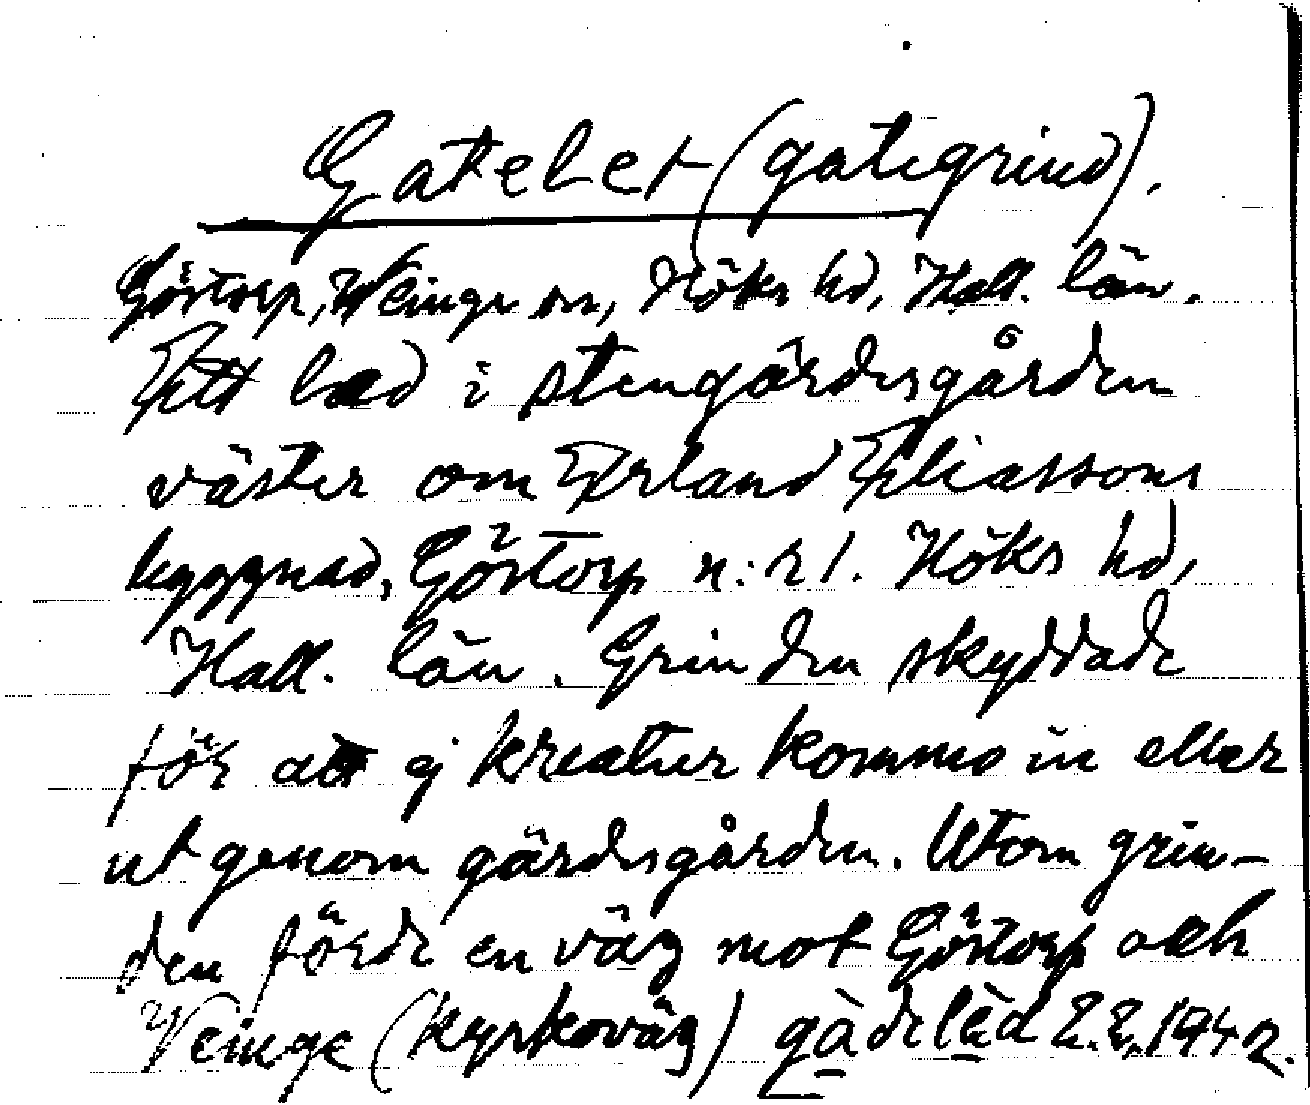 Gateled (gategrind).
Göstorp, Weinge sn, Höks hd, Hall. län.
Ett led i stengärdesgården
väster om Erland Eliassons
byggnad, Göstorp n:r 1. Höks hd,
Hall. län. Grinden skyddade
för att ej kreatur kommo in eller
ut genom gärdesgården. Utom grin-
den förde en väg mot Göstorp och
Veinge (kyrkoväg) gàdelèd 2.2.1942.